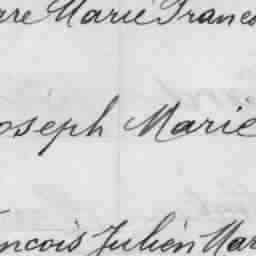 are Marie Frances
oseph Marie
ncois Julien Mar